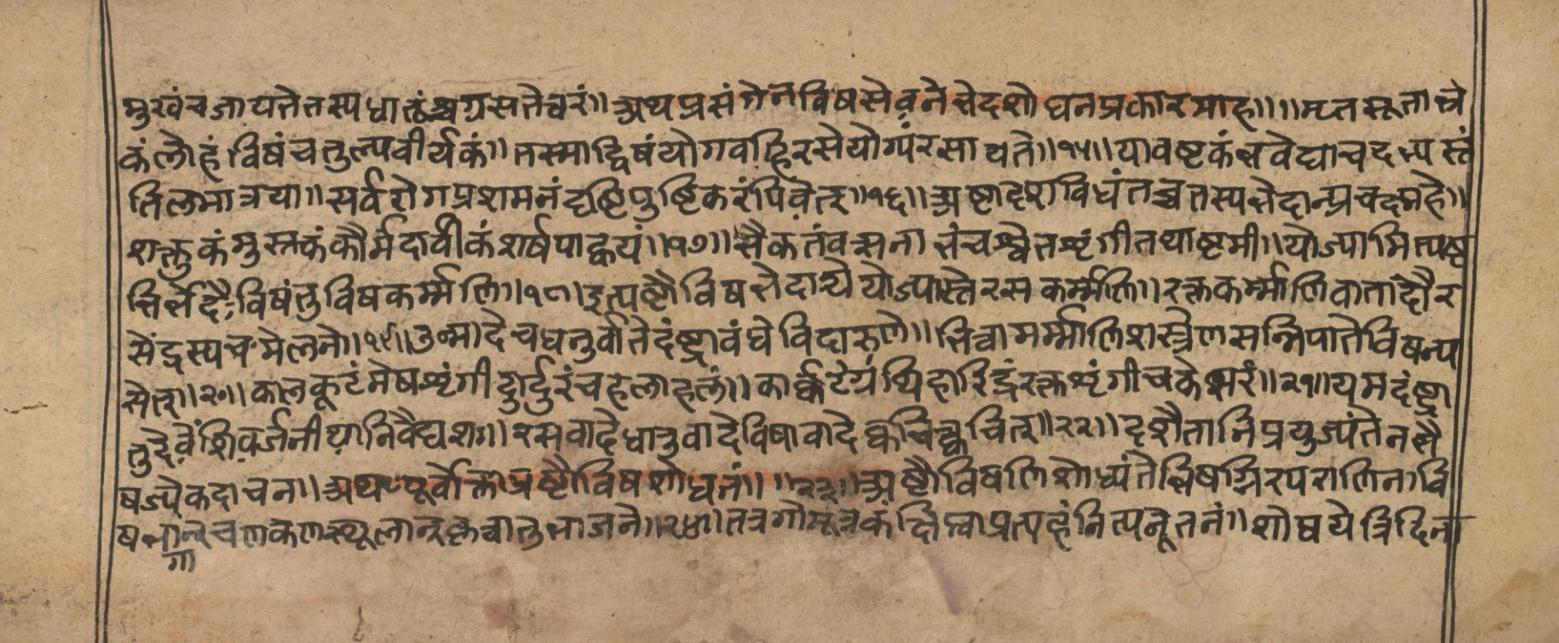 मुखं च जायते तस्य धातूंश्च ग्रसते त्वरं॥ अथ प्रसंगेन विषसेवने भेदशोधनप्रकारमाह॥ ॥ मृतसूताभ्रे
कं लोहं विषं च तुल्यवीर्यकं॥ तस्माद्विषं योगवह्निरसे योग्यं रसायते॥१५॥ यावष्टकं भवेद्याचदभ्यस्तं
तिलमात्रया॥ सर्वरोगप्रशमनं दृष्टिपुष्टिकरं पिवेत्॥१६॥ अष्टादशविधं तच्च तस्य भेदान्प्रचक्ष्महे॥
शक्तुकं मुस्तकं कौर्मं दार्वीकं शर्षपाह्वयं॥१७॥ सैकतं वत्सनाभं च श्वेतशृंगी तथाष्टमी॥ योज्यामित्यष्ट
भिर्भेदैः विषं तु विषकर्म्मणि॥१८॥ इत्यष्टौ विषभेदाश्चे योज्यास्ते रसकर्म्मणि॥ रक्तकर्म्माणि वातादौ र
सेंद्रस्य च मेलने॥१९॥ उन्मादे च धनुर्वाते दंष्ट्रावंधे विदारुणे॥ भित्वा मर्म्माणि शस्त्रेण सन्निपाते विषन्य
सेत्॥२०॥ कालकूटं मेषशृंगी दुर्दुरं च हलाहलं॥ कार्क्कटं ग्रंथि हारिद्रं रक्तशृंगी च केशरं॥२१॥ यमदंष्ट्रा
तु देवेंशि वर्जनीयानि वैद्यश॥ रसवादे धातुवादे विषावादे क्वचित्क्वचित्॥२२॥ दशैतानि प्रयुज्यंते न भै
षज्ये कदाचन॥ अथ पूर्वोक्ताप्रष्टौविषशोधनं॥ ॥२३॥ अष्टौ विषाणि शोध्यंते भिषग्भिरपराणि ना वि
षभागांश्चणकणस्थूलान्कृत्वा तु भाजने॥२४॥ तत्र गोमूत्रकं क्षिप्त्वा प्रत्यहं नित्यनूतनं॥ शोषयेत्रिदिना
गा